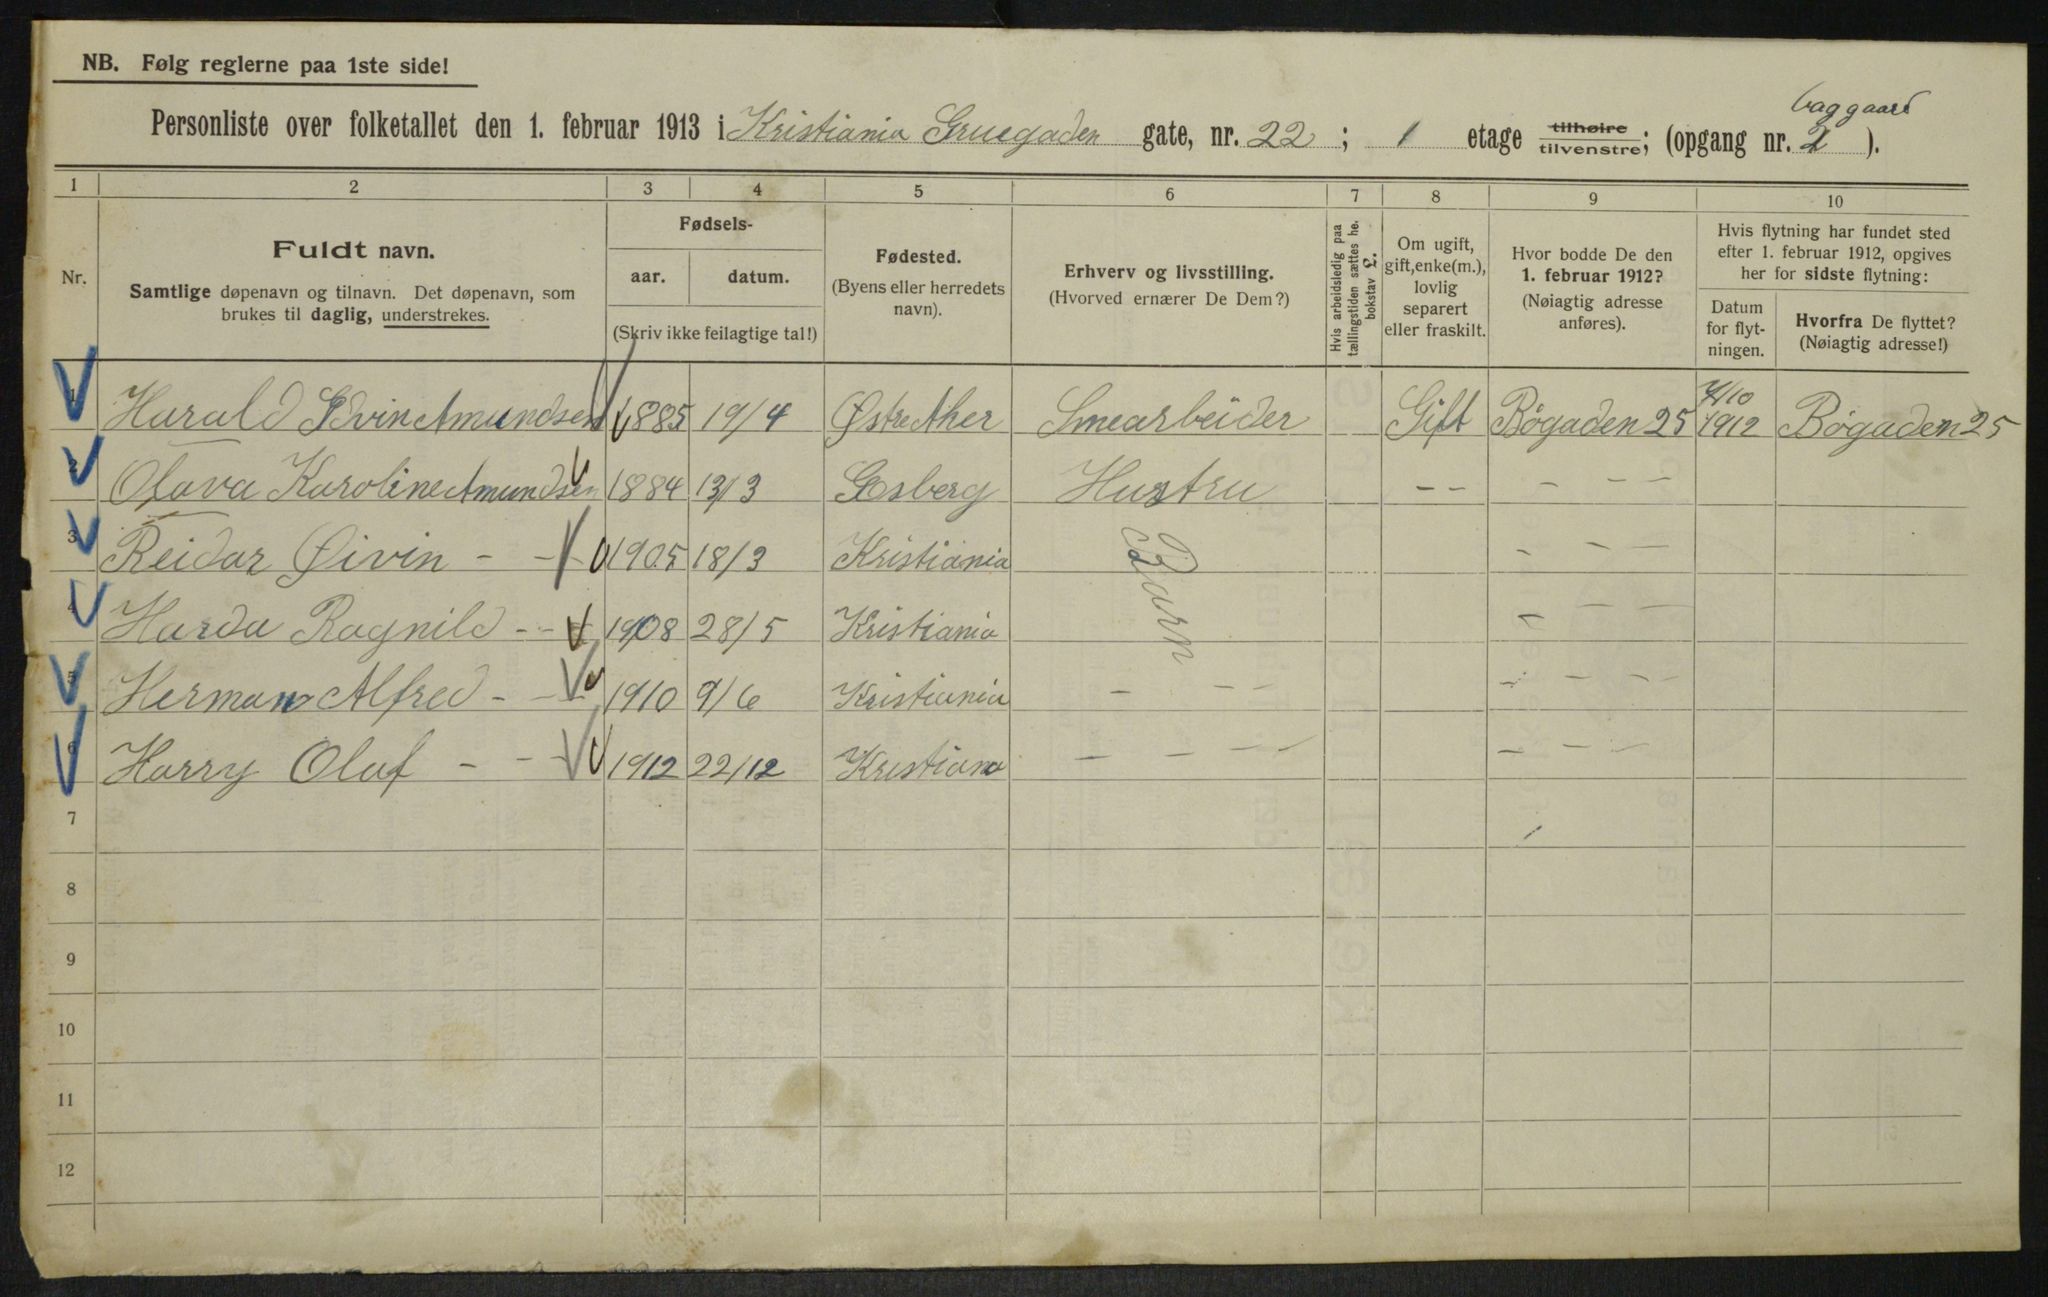 NB. Følg reglerne paa 1ste side!
baggaard
Personliste over folketallet den 1. februar 1913 i Kristiania Gruegaden gate, nr. 22 ; 1 etage tilhøire tilvenstre; (opgang nr. 2 ).
1 2 3 4 5 6 7 8 9 10
Nr.
Fuldt navn.
Samtlige døpenavn og tilnavn. Det døpenavn, som
brukes til daglig, understrekes.
Fødsels-
aar. datum.
(Skriv ikke feilagtige tal!)
Fødested.
(Byens eller herredets
navn).
Erhverv og livsstilling.
(Hvorved ernærer De Dem?)
Hvis arbeidsledig paa
tællingstiden sættes he.
bokstav L.
Om ugift,
gift, enke(m.),
lovlig
separert
eller fraskilt.
Hvor bodde De den
1. februar 1912?
(Nøiagtig adresse
anføres).
Hvis flytning har fundet sted
efter 1. februar 1912, opgives
her for sidste flytning:
Datum
for flyt-
ningen.
Hvorfra De flyttet?
(Nøiagtig adresse!)
1 Harald Edvin Amundsen 1885 19/4 Østre Aker Smearbeider Gift Bøgaden 25 1912 Bøgaden 25
2 Olava Karoline Amundsen 1884 13/3 Hustru - - - - -
3 Reidar Øivin - - 1905 18/3 Kristiania Barn - - -
4 Harda Ragnild - - 1908 28/5 Kristiania - - -
5 Herman Alfred - - 1910 9/6 Kristiania - - - - - -
6 Harry Olaf - - - 1912 22/12 Kristiana - - - - - - -
7
8
9
10
11
12